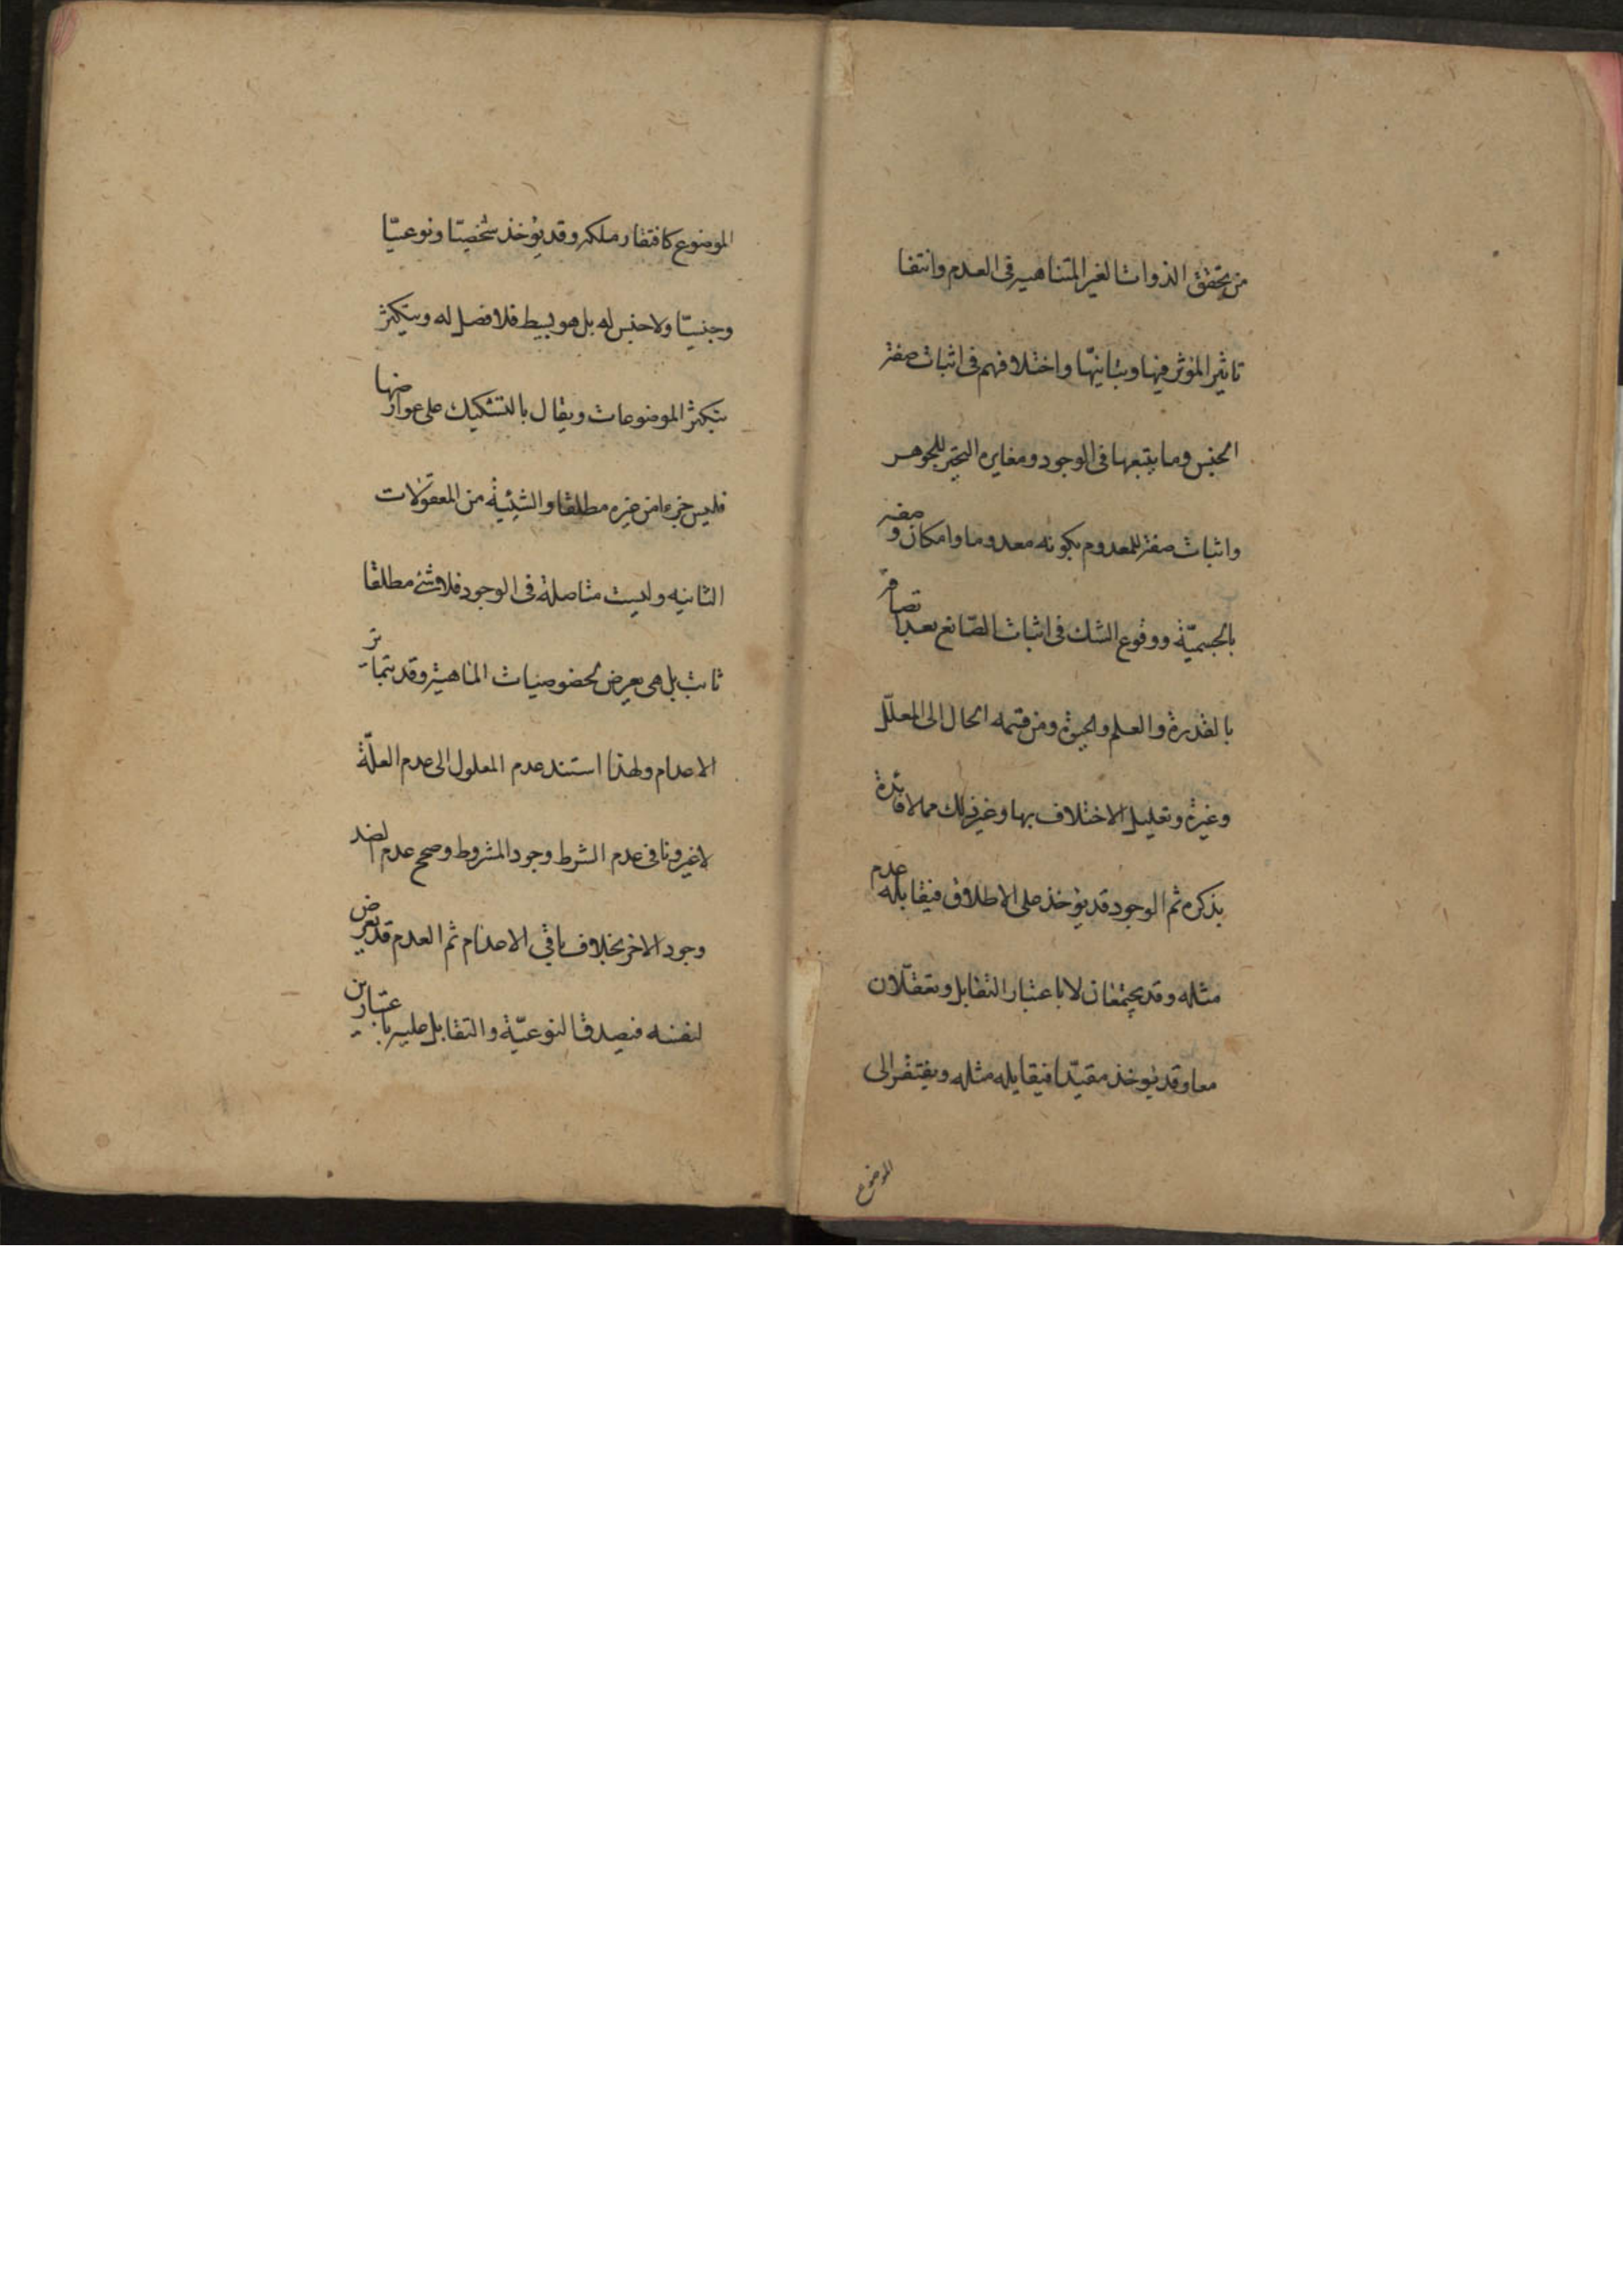 من تحقق الذوات الغير المتناهيه فى العدم وانتفا
تاثير المؤثر فيها وتباينها واختلافهم فى اثبات صفة
الجنس وما يتبعها فى الوجود ومغايره التحيز للجوهر
واثبات صفة للمعدوم بكونه معدوما وامكان وصفه
بالجسمية ووقوع الشك فى اثبات الصانع بعد اتصافه
بالقدرة والعلم والحيوة ومن قسمه الحال الى المعلل
وغيره وتعليل الاختلاف بها وغير ذلك مما لا فائدة
بذكره ثم الوجود قد يؤخذ على الاطلاق فيقابله عدم
مثله وقد يجتمعان لا باعتبار التقابل وتعقلان
معا وقد يؤخذ مقيدا فيقابله مثله ويفتقر الى
الموضوع
الموضوع كافتقار ملكه وقد يؤخذ شخصيا ونوعيا
وجنسيا ولا جنس له بل هو بسيط فلا فصل له ويتكثر
بتكثر الموضوعات ويقال بالتشكيك على عوارضها
فليس جزءا من غيره مطلقا والشيئية من المعقولات
الثانيه وليست متاصلة فى الوجود فلا شئ مطلقا
ثابت بل هى يعرض لخصوصيات الماهية وقد يتمايز
الاعدام ولهذا استند عدم المعلول الى عدم العلة
لا غير ونافى عدم الشرط وجود المشروط وصحح عدم الضد
وجود الاخر بخلاف باقى الاعدام ثم العدم قد يعرض
لنفسه فيصدق النوعية والتقابل عليه باعتبارين